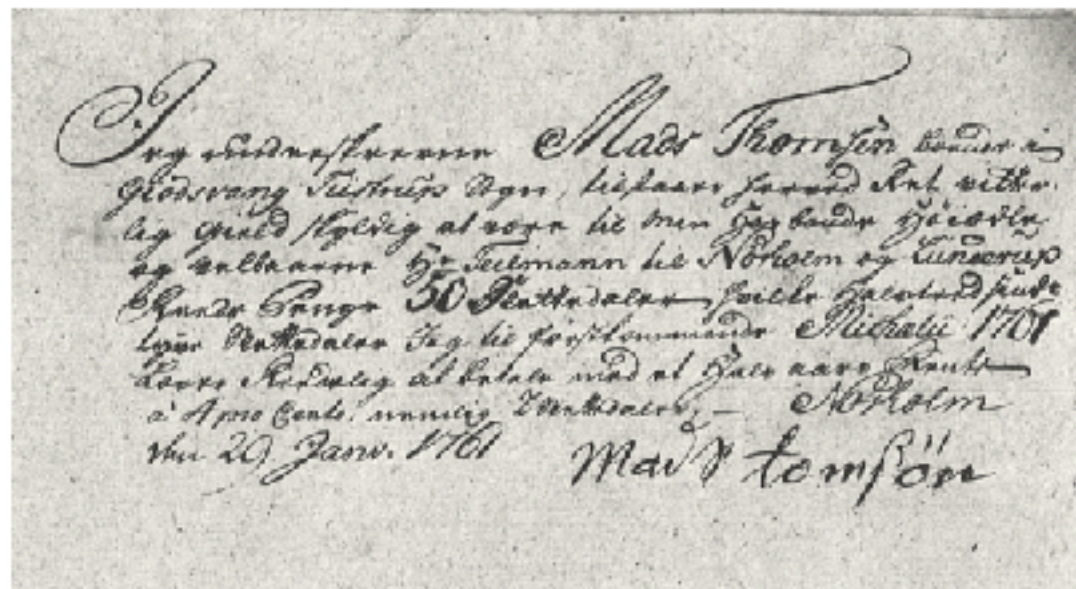 Jeg underskrevne Mads Thomsen boende i
Glodsvang Tistrup Sogn, tilstaar herved Ret vitter
lig Gield skyldig at være til min Hosbonde Høiædle
og velbaarne Hr Teilmann til Nörholm og Lunderup
Reede Penge 50 Slettedaler, hvilke halvtredsinds
tyve Slettedaler Jeg til førstkommende Michalii 1761
lover Rederlig at betale med et halv aars Rente
à 4 pro Cento, nemlig 1 Slettedaler, — Nörholm
den 29 Janv. 1761
Mads tomsön